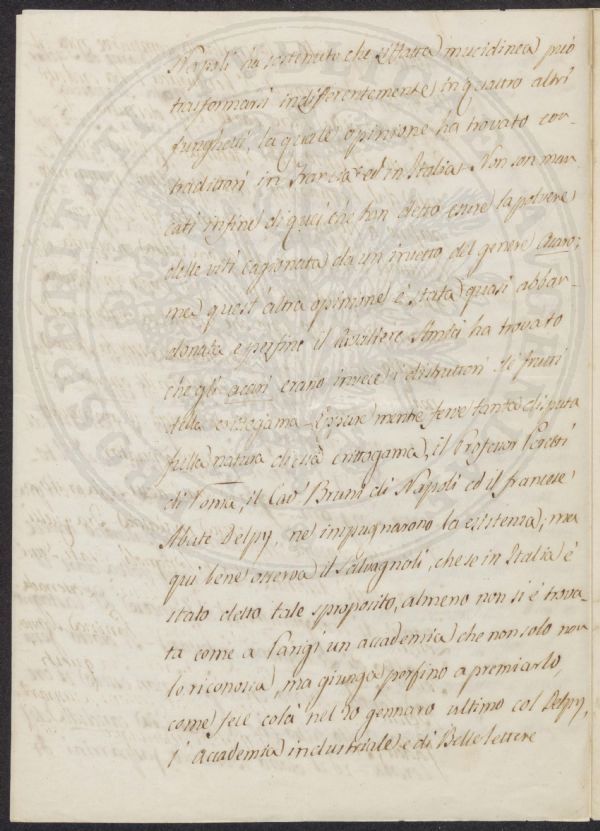 Napoli ha sostenuto che siffatta mucidinea può
trasformarsi indifferentemente in quattro altri
funghetti, la quale opinione ha trovato con-
tradittori in Francia ed in Italia. Non son man-
cati infine di quei che han detto essere la polvere
delle viti cagionata da un insetto del genere Acaro;
ma quest'altra opinione è stata quasi abban-
donata e perfine il Cavaliere Amici ha trovato
che gli acari erano invece i distruttori de' frutti
della crittogama. Eppure mentre ferve tanta disputa
sulla natura di essa crittogama, il Professor
di Roma, il Cav. Bruni di Napoli ed il francese
Abate Delpy, ne impugnarono la esistenza; ma
qui bene osserva il Salvagnoli, che se in Italia è
stato detto tale sproposito, almeno non si è trova-
ta come a Parigi un accademia che non solo non
lo riconosca, ma giunga perfino a premiarlo,
come fece colà nel 20 gennaro ultimo col Delpy,
l'Accademia industriale e di Belle lettere